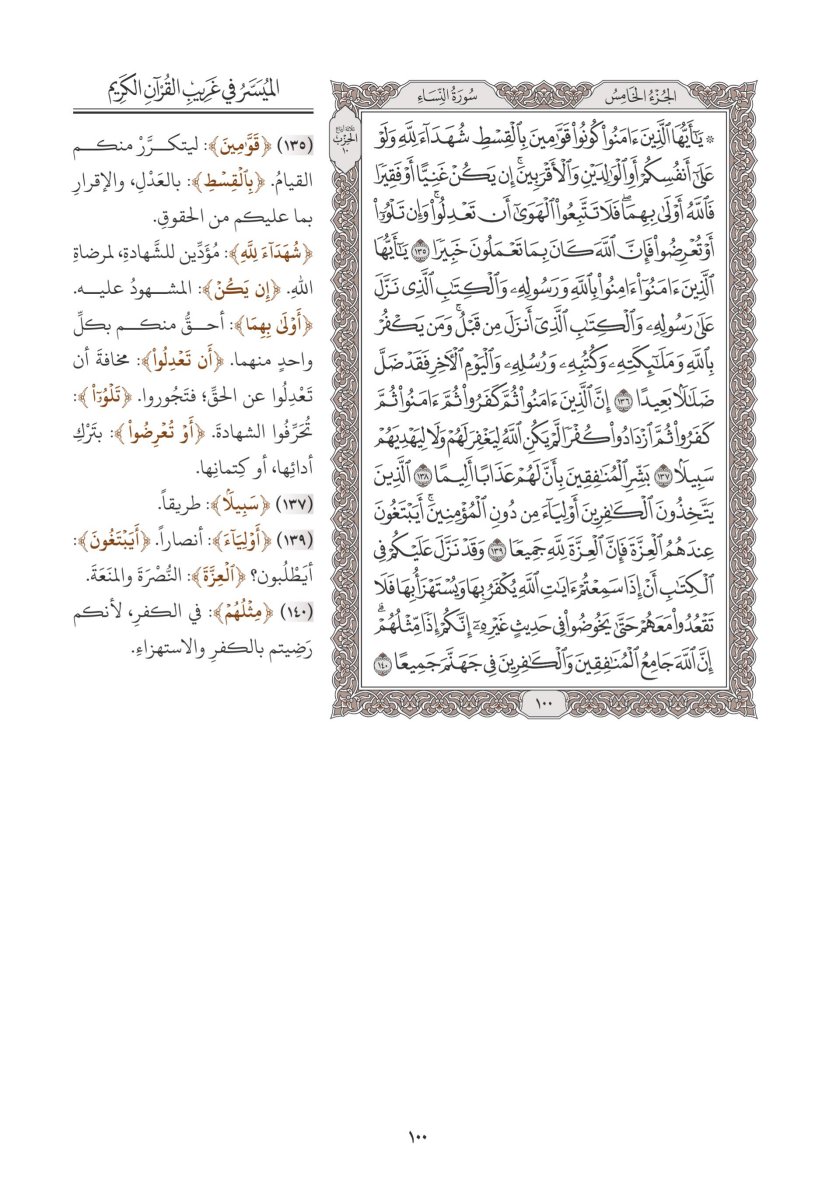 الميسر في غريب القرآن الكريم
الجُزْءُ الخَامِسُ
سُورَةُ النِّسَاءِ
الحِزْبِ
١٠
۞ يَـٰٓأَيُّهَا ٱلَّذِينَ ءَامَنُوا۟ كُونُوا۟ قَوَّٰمِينَ بِٱلْقِسْطِ شُهَدَآءَ لِلَّهِ وَلَوْ
عَلَىٰٓ أَنفُسِكُمْ أَوِ ٱلْوَٰلِدَيْنِ وَٱلْأَقْرَبِينَ ۚ إِن يَكُنْ غَنِيًّا أَوْ فَقِيرًا
فَٱللَّهُ أَوْلَىٰ بِهِمَا ۖ فَلَا تَتَّبِعُوا۟ ٱلْهَوَىٰٓ أَن تَعْدِلُوا۟ ۚ وَإِن تَلْوُۥٓا۟
أَوْ تُعْرِضُوا۟ فَإِنَّ ٱللَّهَ كَانَ بِمَا تَعْمَلُونَ خَبِيرًا ١٣٥ يَـٰٓأَيُّهَا
ٱلَّذِينَ ءَامَنُوٓا۟ ءَامِنُوا۟ بِٱللَّهِ وَرَسُولِهِۦ وَٱلْكِتَـٰبِ ٱلَّذِى نَزَّلَ
عَلَىٰ رَسُولِهِۦ وَٱلْكِتَـٰبِ ٱلَّذِىٓ أَنزَلَ مِن قَبْلُ ۚ وَمَن يَكْفُرْ
بِٱللَّهِ وَمَلَـٰٓئِكَتِهِۦ وَكُتُبِهِۦ وَرُسُلِهِۦ وَٱلْيَوْمِ ٱلْـَٔاخِرِ فَقَدْ ضَلَّ
ضَلَـٰلًۢا بَعِيدًا ١٣٦ إِنَّ ٱلَّذِينَ ءَامَنُوا۟ ثُمَّ كَفَرُوا۟ ثُمَّ ءَامَنُوا۟ ثُمَّ
كَفَرُوا۟ ثُمَّ ٱزْدَادُوا۟ كُفْرًا لَّمْ يَكُنِ ٱللَّهُ لِيَغْفِرَ لَهُمْ وَلَا لِيَهْدِيَهُمْ
سَبِيلًۢا ١٣٧ بَشِّرِ ٱلْمُنَـٰفِقِينَ بِأَنَّ لَهُمْ عَذَابًا أَلِيمًا ١٣٨ ٱلَّذِينَ
يَتَّخِذُونَ ٱلْكَـٰفِرِينَ أَوْلِيَآءَ مِن دُونِ ٱلْمُؤْمِنِينَ ۚ أَيَبْتَغُونَ
عِندَهُمُ ٱلْعِزَّةَ فَإِنَّ ٱلْعِزَّةَ لِلَّهِ جَمِيعًا ١٣٩ وَقَدْ نَزَّلَ عَلَيْكُمْ فِى
ٱلْكِتَـٰبِ أَنْ إِذَا سَمِعْتُمْ ءَايَـٰتِ ٱللَّهِ يُكْفَرُ بِهَا وَيُسْتَهْزَأُ بِهَا فَلَا
تَقْعُدُوا۟ مَعَهُمْ حَتَّىٰ يَخُوضُوا۟ فِى حَدِيثٍ غَيْرِهِۦٓ ۚ إِنَّكُمْ إِذًا مِّثْلُهُمْ ۗ
إِنَّ ٱللَّهَ جَامِعُ ٱلْمُنَـٰفِقِينَ وَٱلْكَـٰفِرِينَ فِى جَهَنَّمَ جَمِيعًا ١٤٠
١٠٠
(١٣٥) ﴿قَوَّٰمِينَ﴾: ليتكرَّرْ منكم
القيامُ. ﴿بِٱلْقِسْطِ﴾: بالعَدْلِ، والإقرارِ
بما عليكم من الحقوقِ.
﴿شُهَدَآءَ لِلَّهِ﴾: مُؤَدِّين للشَّهادةِ، لمرضاةِ
اللهِ. ﴿إِن يَكُنْ﴾: المشهودُ عليه.
﴿أَوْلَىٰ بِهِمَا﴾: أحقُّ منكم بكلِّ
واحدٍ منهما. ﴿أَن تَعْدِلُوا۟﴾: مخافةَ أن
تَعْدِلُوا عن الحقِّ؛ فتَجُوروا. ﴿تَلْوُۥٓا۟﴾:
تُحَرِّفُوا الشهادةَ. ﴿أَوْ تُعْرِضُوا۟﴾: بتَرْكِ
أدائِها، أو كِتمانِها.
(١٣٧) ﴿سَبِيلًۢا﴾: طريقاً.
(١٣٩) ﴿أَوْلِيَآءَ﴾: أنصاراً. ﴿أَيَبْتَغُونَ﴾:
أيَطْلُبون؟ ﴿ٱلْعِزَّةَ﴾: النُّصْرَةَ والمنَعَةَ.
(١٤٠) ﴿مِثْلُهُمْ﴾: في الكفرِ، لأنكم
رَضِيتم بالكفرِ والاستهزاءِ.
١٠٠